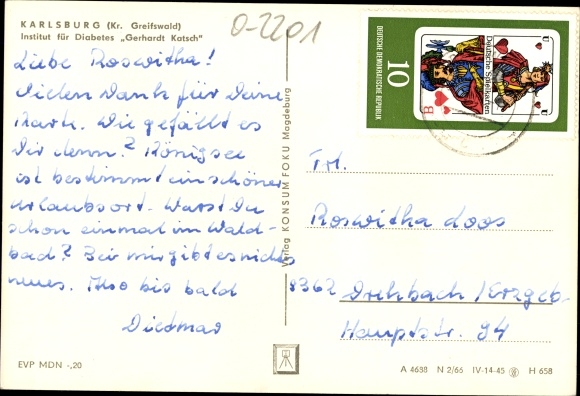 KARLSBURG (Kr. Greifswald)
Institut für Diabetes „Gerhardt Katsch"
0-2201
Liebe Roswitha!
Vielen Dank für Deine
Karte. Wie gefällt es
Dir denn? Königsee
ist bestimmt ein schöner
Urlaubsort. Warst Du
schon einmal im Wald-
bad? Bei mir gibt es nichts
neues. Also bis bald
Dietmar
EVP MDN -,20
Verlag KONSUM FOKU Magdeburg
DEUTSCHE DEMOKRATISCHE REPUBLIK
10
Deutsche Spielkarten
B
U
U
U
Frl.
Roswitha Loos
9362 Drehbach /Erzgeb.
Hauptstr. 94
A 4688 N 2/66 IV-14-45 H 658